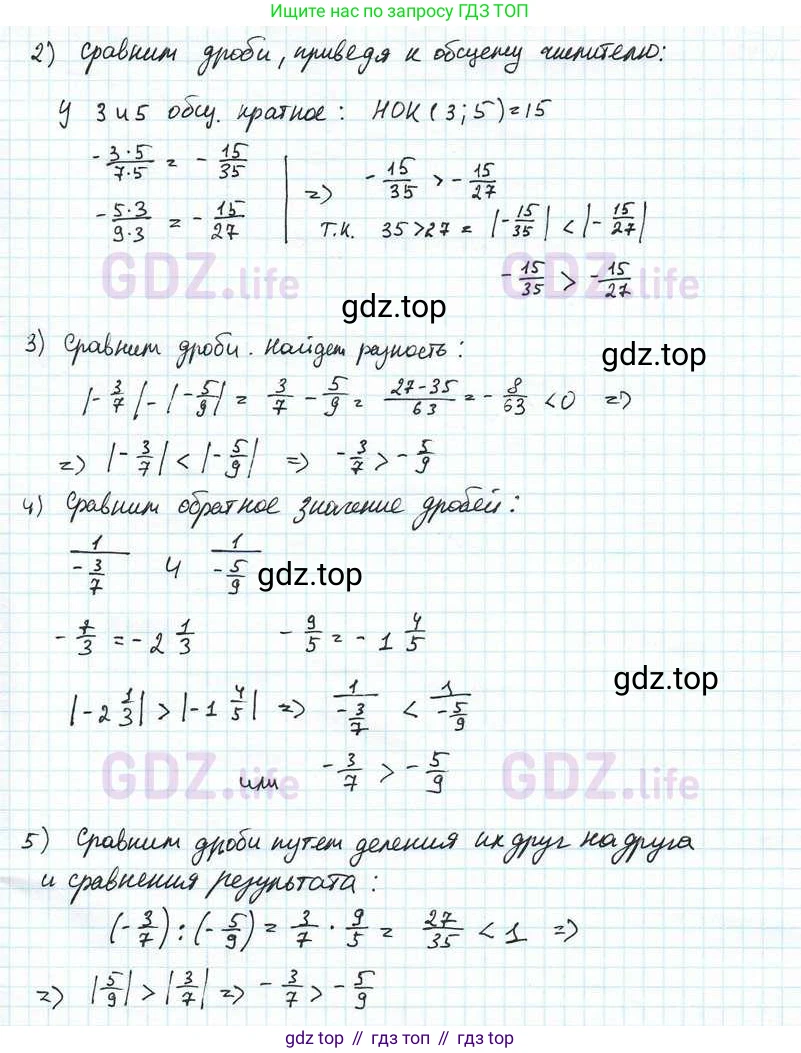 Ищите нас по запросу ГДЗ ТОП
2) Сравним дроби, приведя к общему числителю:
У 3 и 5 общ. кратное: НОК(3;5)=15
-\frac{3·5}{7·5} = -\frac{15}{35}
-\frac{5·3}{9·3} = -\frac{15}{27}
=> -\frac{15}{35} > -\frac{15}{27}
т.к. 35>27 = |-\frac{15}{35}| < |-\frac{15}{27}|
-\frac{15}{35} > -\frac{15}{27}
GDZ.life
GDZ.life
gdz.top
3) Сравним дроби. Найдем разность:
gdz.top
|-\frac{3}{7}| - |-\frac{5}{9}| = \frac{3}{7} - \frac{5}{9} = \frac{27-35}{63} = -\frac{8}{63} < 0 =>
=> |-\frac{3}{7}| < |-\frac{5}{9}| => -\frac{3}{7} > -\frac{5}{9}
4) Сравним обратное значение дробей:
\frac{1}{-\frac{3}{7}} и \frac{1}{-\frac{5}{9}}
gdz.top
-\frac{7}{3} = -2\frac{1}{3} -\frac{9}{5} = -1\frac{4}{5}
|-2\frac{1}{3}| > |-1\frac{4}{5}| => \frac{1}{-\frac{3}{7}} < \frac{1}{-\frac{5}{9}}
gdz.top
или -\frac{3}{7} > -\frac{5}{9}
GDZ.life
GDZ.life
5) Сравним дроби путем деления их друг на друга
и сравнения результата:
(-\frac{3}{7}) : (-\frac{5}{9}) = \frac{3}{7} · \frac{9}{5} = \frac{27}{35} < 1 =>
=> |\frac{5}{9}| > |\frac{3}{7}| => -\frac{3}{7} > -\frac{5}{9}
gdz.top // гдз топ // гдз.топ